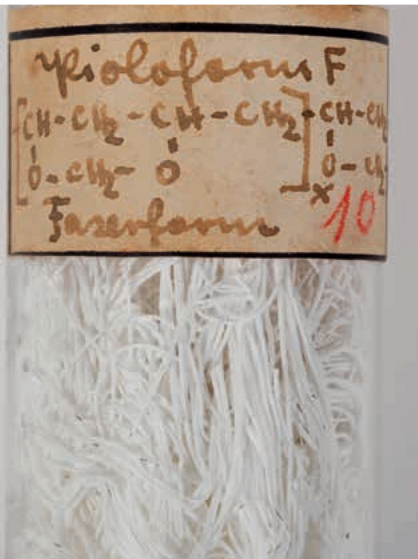 Pioloform F
[CH-CH2-CH-CH2] CH-CH
O-CH2-O x O-CH
Faserform 10